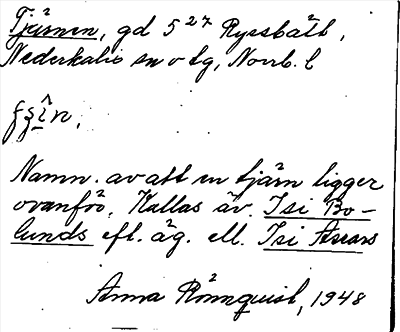 Tjärnen, gd 5 27 Ryssbält,
Nederkalix sn o tg, Norrb. l
Namn. av att en tjärn ligger
ovanför. Kallas äv. Isi Bo-
lunds eft. äg. ell. Isi Ascars
Anna Rönnquist, 1948